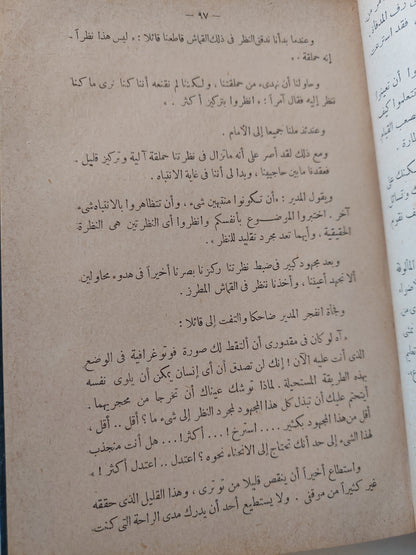 — ٩٧ —
وعندما بدأنا ندقق النظر فى ذلك القماش قاطعنا قائلا : « ليس هذا نظراً .
إنه حملقة » .
وحاولنا أن نهدىء من حملقتنا ، ولكننا لم نقنعه أننا كنا نرى ما كنا
ننظر إليه فقال آمراً : « انظروا بتركيز أكثر . »
وعندئذ ملنا جميعا إلى الأمام .
ومع ذلك لقد أصر على أنه مانزال فى نظرتنا حملقة آلية وتركيز قليل .
فعقدنا مابين حاجبينا ، وبدا لى أننا فى غاية الانتباه .
ويقول المدير : « أن تكونوا منتبهين شىء ، وأن تتظاهروا بالانتباه شىء
آخر . اختبروا الموضوع بأنفسكم وانظروا أى النظرتين هى النظرة
الحقيقية ، وأيهما تعد مجرد تقليد للنظر » .
وبعد مجهود كبير فى ضبط نظرتنا ركزنا بصرنا أخيراً فى هدوء محاولين
ألا نجهد أعيننا ، وأخذنا ننظر فى القماش المطرز .
وفجأة انفجر المدير ضاحكا والتفت إلى قائلا :
« آه لو كان فى مقدورى أن ألتقط لك صورة فوتوغرافية فى الوضع
الذى أنت عليه الآن ! إنك لن تصدق أن أى إنسان يمكن أن يلوى نفسه
بهذه الطريقة المستحيلة . لماذا توشك عيناك أن تخرجا من محجريهما .
أيتحتم عليك أن تبذل كل هذا المجهود لمجرد النظر إلى شىء ما ؟ أقل .. أقل ،
أقل من هذا المجهود بكثير .... استرخ ! ... أكثر ! ... هل أنت منجذب
لهذا الشىء إلى حد أنك تحتاج إلى الانحناء نحوه ؟ اعتدل .. اعتدل أكثر ! »
واستطاع أخيراً أن ينقص قليلا من توترى ، وهذا القليل الذى حققه
غير كثيراً من موقفى . ولا يستطيع أحد أن يدرك مدى الراحة التى كنت